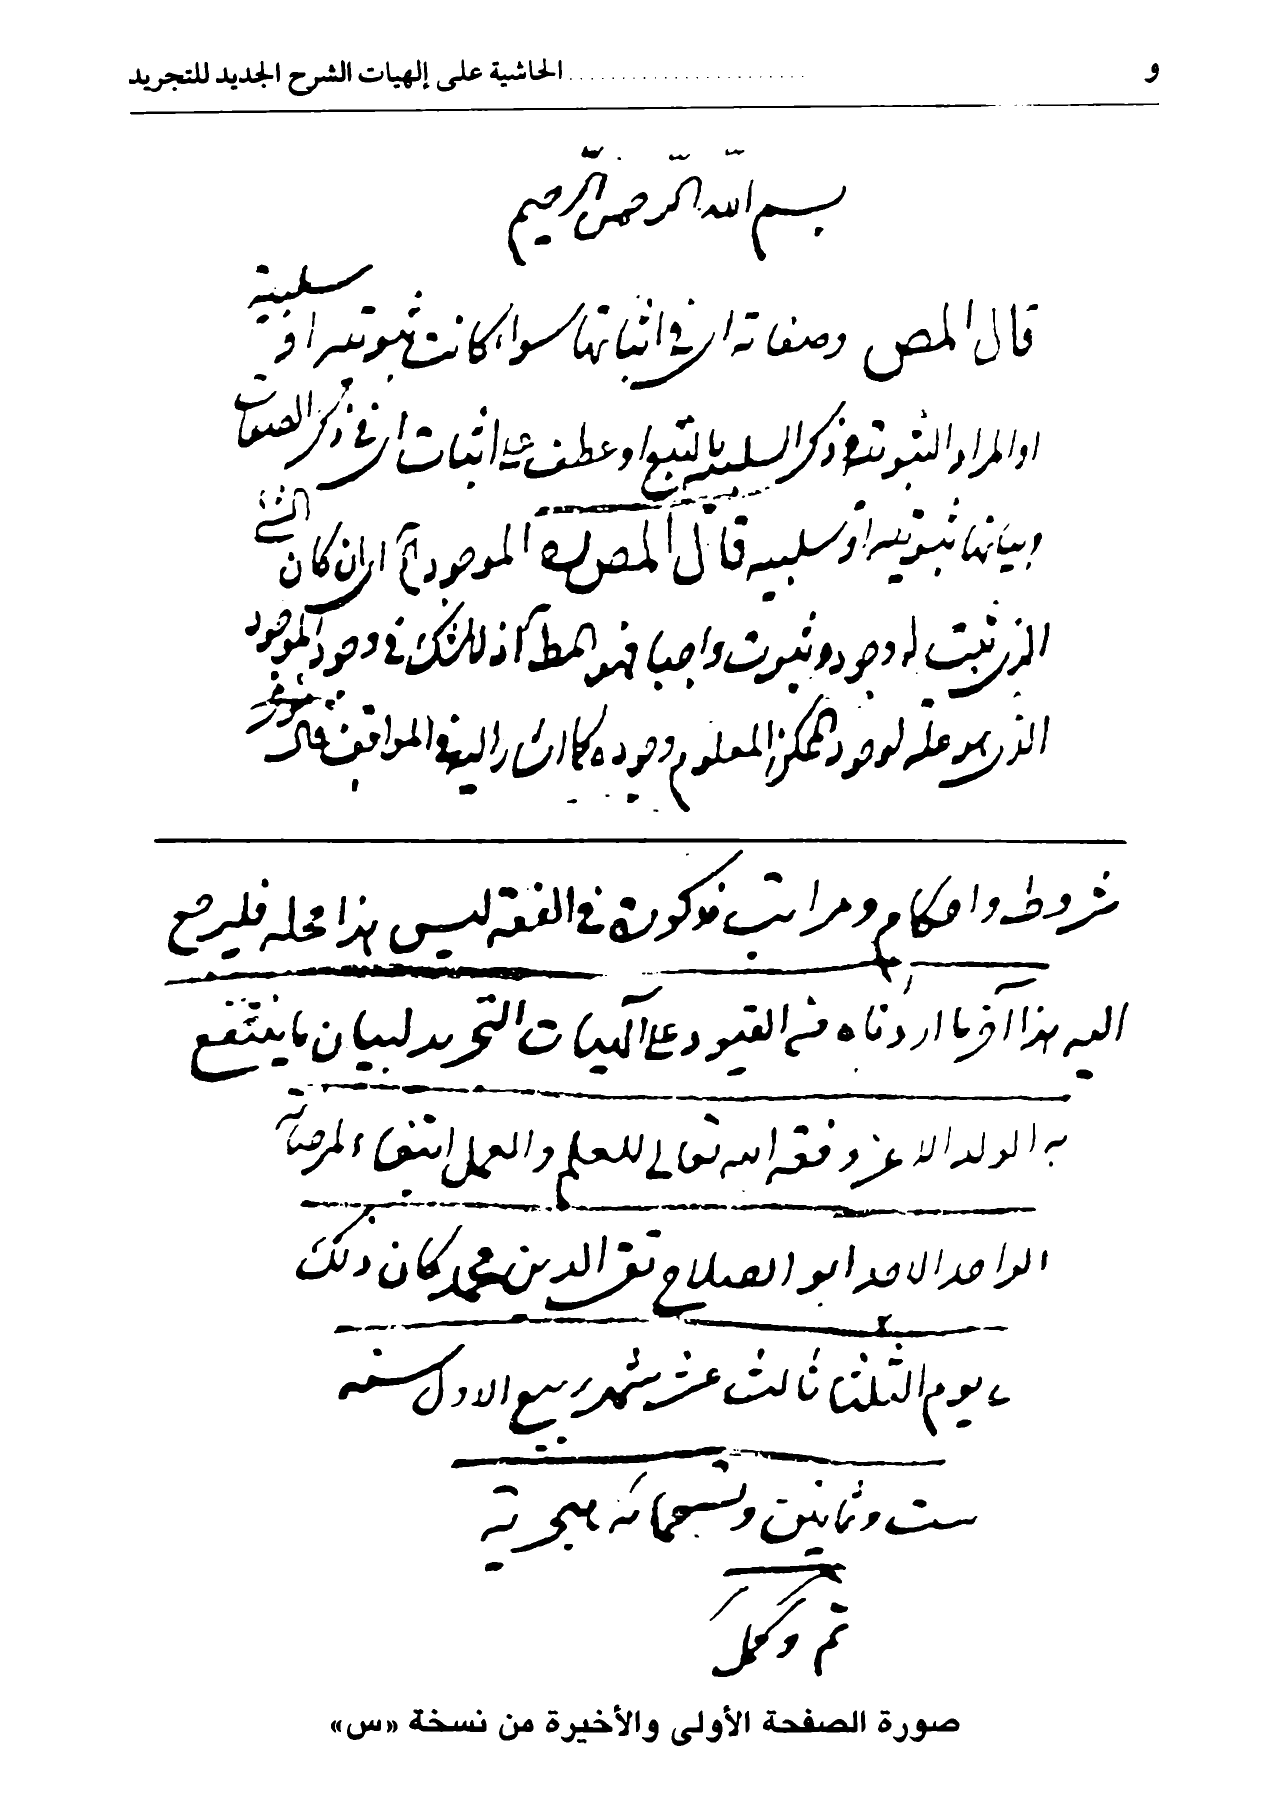 و ..................... الحاشية على إلهيات الشرح الجديد للتجريد
بسم الله الرحمن الرحيم
قال المص وصفاته اى فى اثباتها سواء كانت ثبوتيه او سلبية
او المراد الثبوتيه و ذكر السلبيه بالتبع او عطف على اثبات اى فى ذكر الصفات
وبيانها ثبوتيه او سلبيه قال المص ره الموجود آه اى ان كان الشئ
الذى ثبت له وجود وثبوت واجبا فهو المط اذ لا شك فى وجود الموجود
الذى هو علة لوجود الممكن المعلوم وجوده كما اشار اليه فى المواقف قال
شروط واحكام ومراتب مذكورة فى الفقه ليس هذا محله فليرجع
اليه هذا آخر ما اردناه من القيود على آلهيات التجريد لبيان ما ينتفع
به الولد الاعز وفقه الله تعالى للعلم والعمل ابتغاء لمرضاته
الواحد الاحد ابو الصلاح تقى الدين محمد كان ذلك
يوم الثلثا ثالث عشر شهر ربيع الاول سنه
ست وثمانين وتسعمائه هجرية
تم وكمل
صورة الصفحة الأولى والأخيرة من نسخة «س»